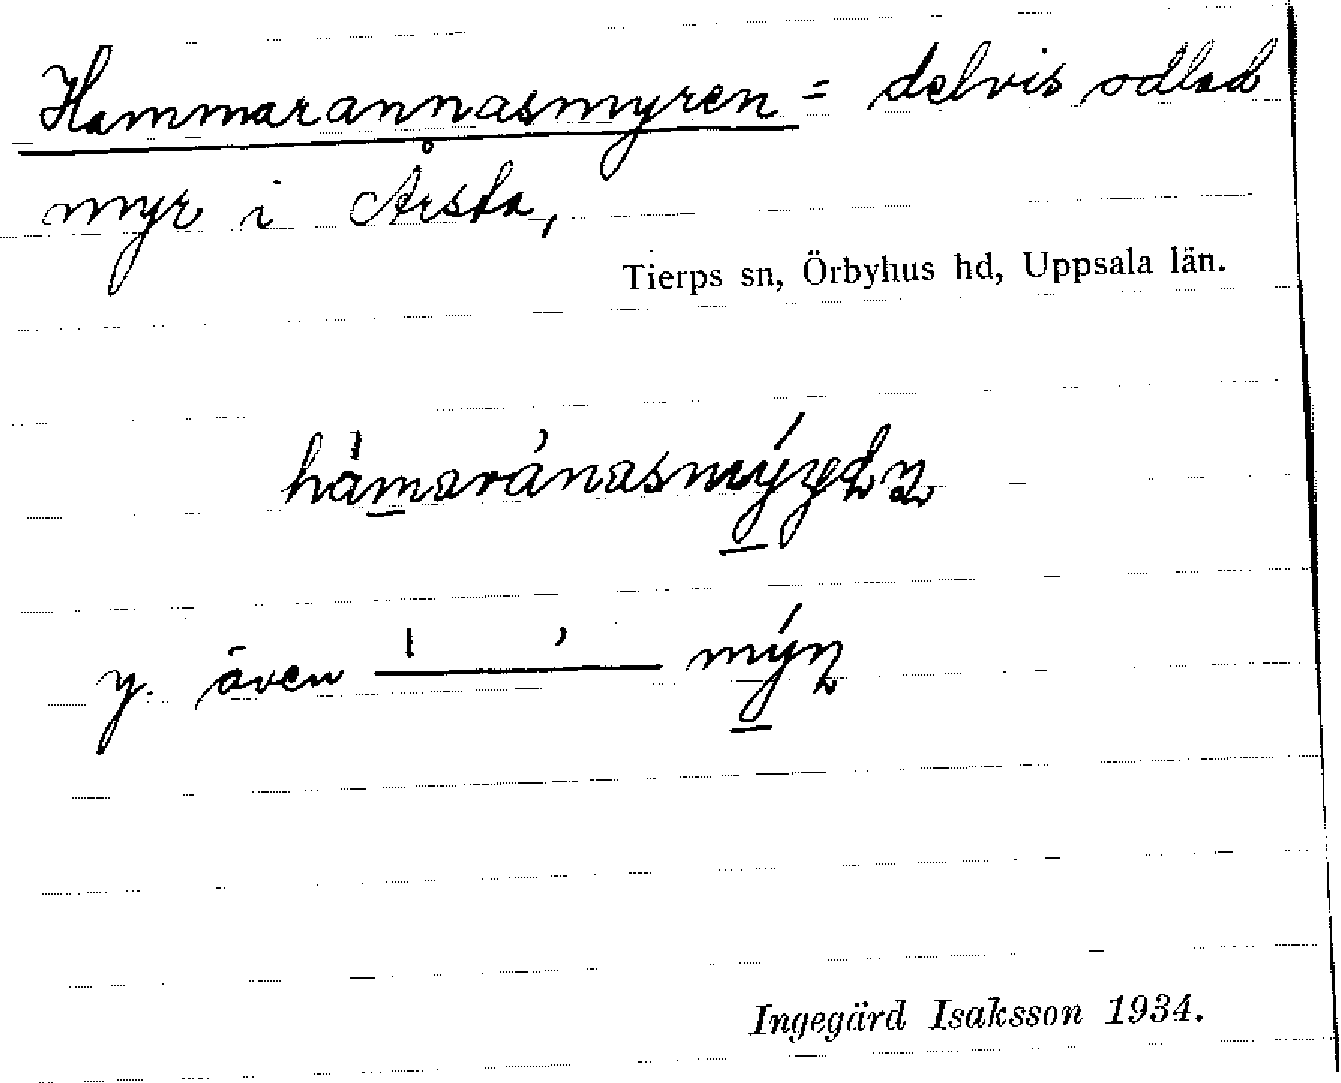 Hammarannasmyren = delvis odlad
myr i Årsta,
Tierps sn, Örbyhus hd, Uppsala län.
y. även mýn
Ingegärd Isaksson 1934.